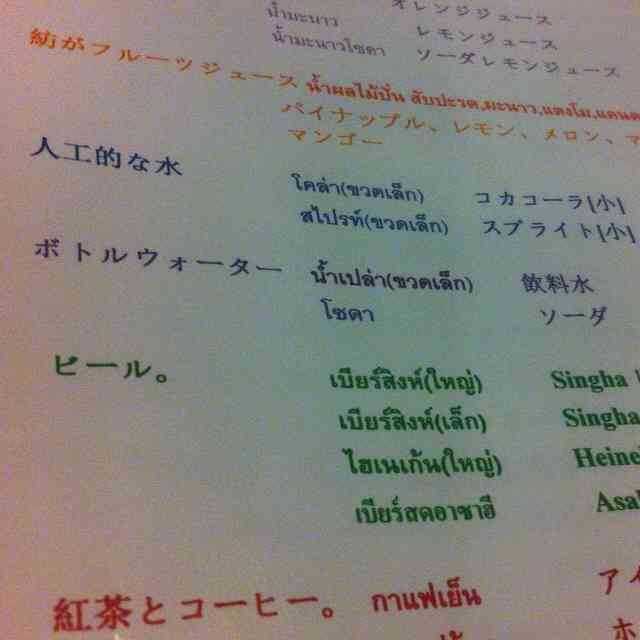 オレンジジュース
น้ำมะนาว レモンジュース
น้ำมะนาวโซดา ソーダレモンジュース
紡がフルーツジュース น้ำผลไม้ปั่น สับปะรด,มะนาว,แตงโม,แคนต
パイナップル、レモン、メロン、マ
マンゴー
人工的な水 โคล่า(ขวดเล็ก) コカコーラ[小]
สไปรท์(ขวดเล็ก) スプライト[小]
ボトルウォーター น้ำเปล่า(ขวดเล็ก) 飲料水
โซดา ソーダ
ビール。 เบียร์สิงห์(ใหญ่) Singha
เบียร์สิงห์(เล็ก) Singha
ไฮเนเก้น(ใหญ่) Heine
เบียร์สดอาซาฮี Asa
紅茶とコーヒー。 กาแฟเย็น アイ
ホ